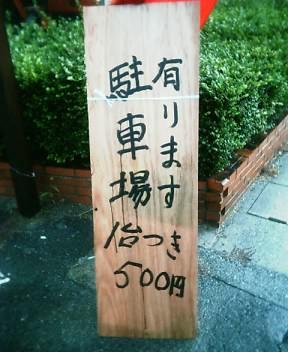 有ります
駐車場
1台つき
500円